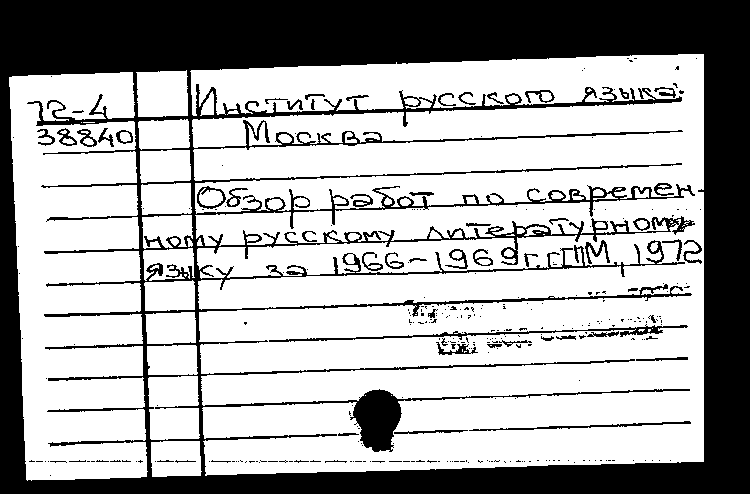 72-4 Институт русского языка.
38840 Москва
Обзор работ по современ-
ному русскому литературному
языку за 1966-1969 г.г. М., 1972